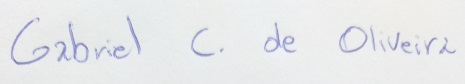 Gabriel C. de Oliveira